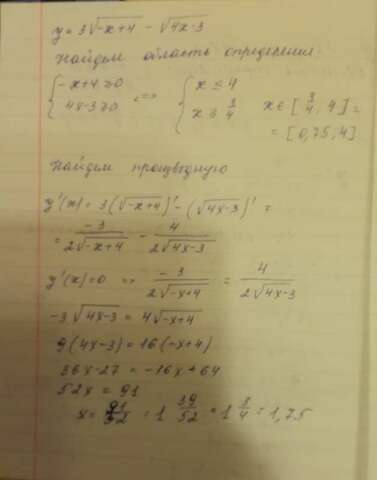 y = 3√(-x+4) - √(4x-3)
Найдем область определения
{ -x+4 ≥ 0 ; 4x-3 ≥ 0 <=> { x ≤ 4 ; x ≥ 3/4 x ∈ [3/4, 4] =
= [0,75, 4]
Найдем производную
y'(x) = 3(√(-x+4))' - (√(4x-3))' =
= -3/(2√(-x+4)) - 4/(2√(4x-3))
y'(x) = 0 => -3/(2√(-x+4)) = 4/(2√(4x-3))
-3√(4x-3) = 4√(-x+4)
9(4x-3) = 16(-x+4)
36x - 27 = -16x + 64
52x = 91
x = 91/52 = 1 39/52 = 1 3/4 = 1,75